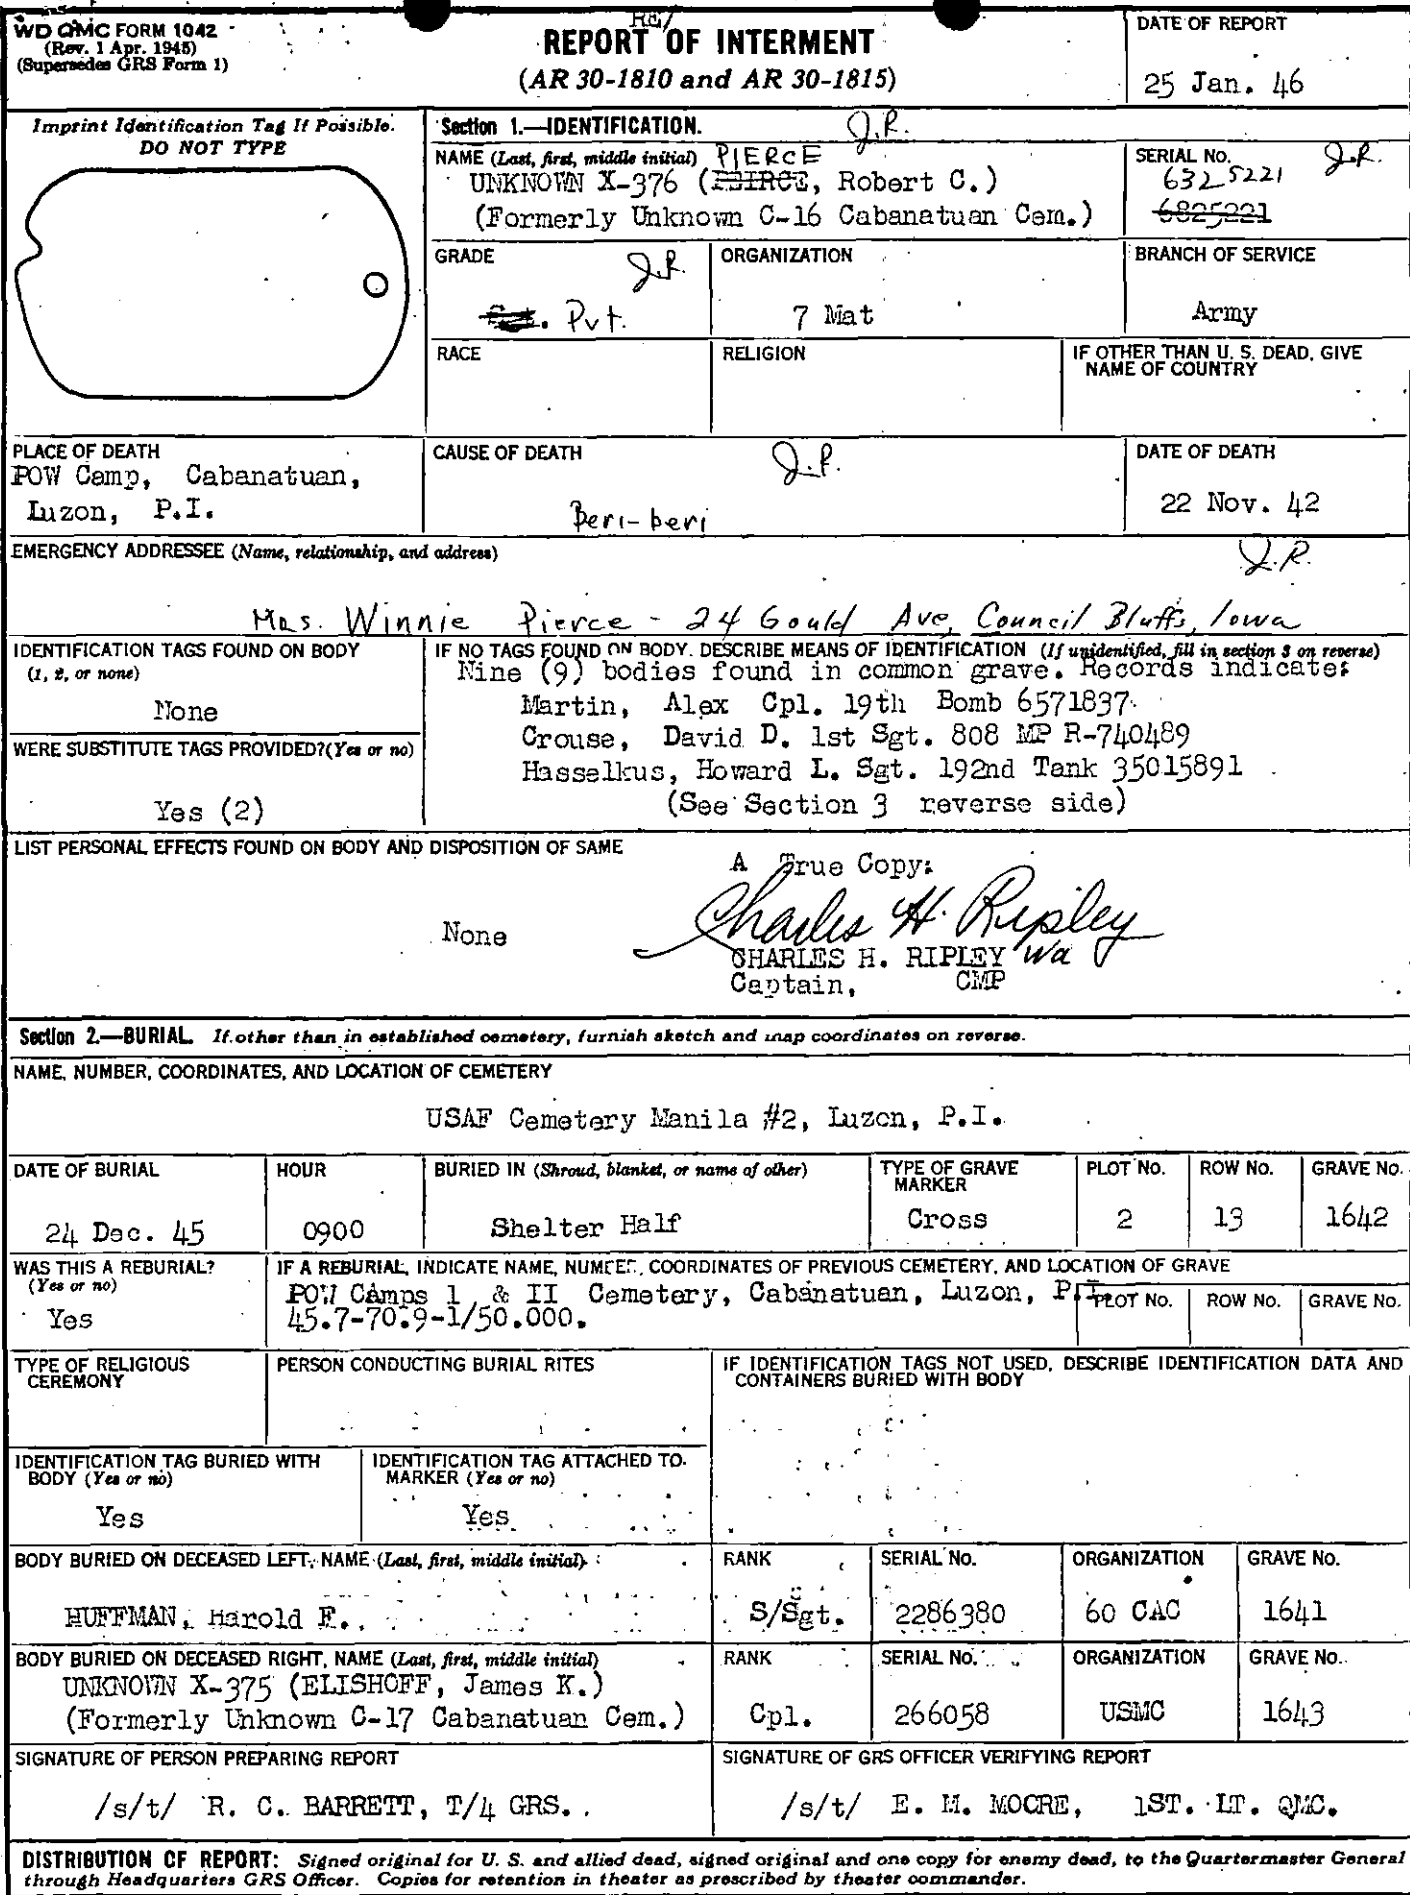 WD QMC FORM 1042
(Rev. 1 Apr. 1945)
(Supersedes GRS Form 1)
RE/
REPORT OF INTERMENT
(AR 30-1810 and AR 30-1815)
DATE OF REPORT
25 Jan. 46
Imprint Identification Tag If Possible.
DO NOT TYPE
Section 1.—IDENTIFICATION.
J.R.
NAME (Last, first, middle initial) PIERCE
UNKNOWN X-376 (PEIRCE, Robert C.)
(Formerly Unknown C-16 Cabanatuan Cem.)
SERIAL No. J.R.
6325221
6825221
GRADE J.R.
Pvt.
ORGANIZATION
7 Mat
BRANCH OF SERVICE
Army
RACE
RELIGION
IF OTHER THAN U. S. DEAD, GIVE
NAME OF COUNTRY
PLACE OF DEATH
POW Camp, Cabanatuan,
Luzon, P.I.
CAUSE OF DEATH J.R.
Beri-beri
DATE OF DEATH
22 Nov. 42
EMERGENCY ADDRESSEE (Name, relationship, and address)
J.R.
Mrs. Winnie Pierce - 24 Gould Ave, Council Bluffs, Iowa
IDENTIFICATION TAGS FOUND ON BODY
(1, 2, or none)
None
WERE SUBSTITUTE TAGS PROVIDED? (Yes or no)
Yes (2)
IF NO TAGS FOUND ON BODY. DESCRIBE MEANS OF IDENTIFICATION (If unidentified, fill in section 3 on reverse)
Nine (9) bodies found in common grave. Records indicate:
Martin, Alex Cpl. 19th Bomb 6571837
Crouse, David D. 1st Sgt. 808 MP R-740489
Hasselkus, Howard L. Sgt. 192nd Tank 35015891
(See Section 3 reverse side)
LIST PERSONAL EFFECTS FOUND ON BODY AND DISPOSITION OF SAME
None
A True Copy:
Charles H. Ripley
CHARLES H. RIPLEY wa
Captain, CMP
Section 2.—BURIAL. If other than in established cemetery, furnish sketch and map coordinates on reverse.
NAME, NUMBER, COORDINATES, AND LOCATION OF CEMETERY
USAF Cemetery Manila #2, Luzon, P.I.
DATE OF BURIAL
24 Dec. 45
HOUR
0900
BURIED IN (Shroud, blanket, or name of other)
Shelter Half
TYPE OF GRAVE
MARKER
Cross
PLOT No.
2
ROW No.
13
GRAVE No.
1642
WAS THIS A REBURIAL?
(Yes or no)
Yes
IF A REBURIAL, INDICATE NAME, NUMBER, COORDINATES OF PREVIOUS CEMETERY, AND LOCATION OF GRAVE
POW Camps 1 & II Cemetery, Cabanatuan, Luzon, P.I.
45.7-70.9-1/50.000.
PLOT No.
ROW No.
GRAVE No.
TYPE OF RELIGIOUS
CEREMONY
PERSON CONDUCTING BURIAL RITES
IF IDENTIFICATION TAGS NOT USED, DESCRIBE IDENTIFICATION DATA AND
CONTAINERS BURIED WITH BODY
IDENTIFICATION TAG BURIED WITH
BODY (Yes or no)
Yes
IDENTIFICATION TAG ATTACHED TO
MARKER (Yes or no)
Yes
BODY BURIED ON DECEASED LEFT, NAME (Last, first, middle initial)
HUFFMAN, Harold F.
RANK
S/Sgt.
SERIAL No.
2286380
ORGANIZATION
60 CAC
GRAVE No.
1641
BODY BURIED ON DECEASED RIGHT, NAME (Last, first, middle initial)
UNKNOWN X-375 (ELISHOFF, James K.)
(Formerly Unknown C-17 Cabanatuan Cem.)
RANK
Cpl.
SERIAL No.
266058
ORGANIZATION
USMC
GRAVE No.
1643
SIGNATURE OF PERSON PREPARING REPORT
/s/t/ R. C. BARRETT, T/4 GRS.
SIGNATURE OF GRS OFFICER VERIFYING REPORT
/s/t/ E. M. MOORE, 1ST. LT. QMC.
DISTRIBUTION OF REPORT: Signed original for U. S. and allied dead, signed original and one copy for enemy dead, to the Quartermaster General
through Headquarters GRS Officer. Copies for retention in theater as prescribed by theater commander.